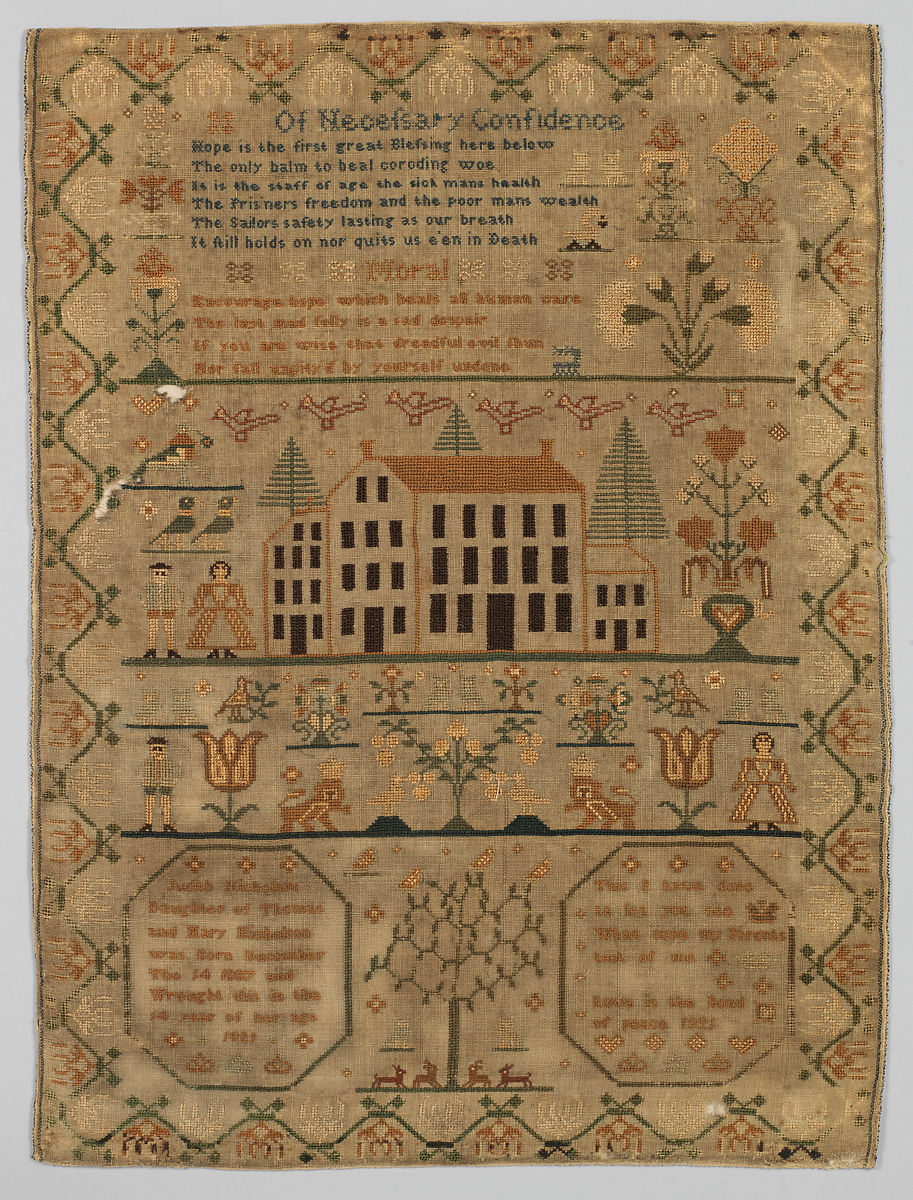 Of Neceſsary Confidence
Hope is the first great Bleſsing here below
The only balm to heal coroding woe
It is the staff of age the sick mans health
The Prisners freedom and the poor mans wealth
The Sailors safety lasting as our breath
It ſtill holds on nor quits us e'en in Death
Moral
Encourage hope which heals all human care
The last mad folly is a sad despair
If you are wise that dreadful evil ſhun
Nor fall unpity'd by yourself undone
Judith Nicholson
Daughter of Thomas
and Mary Nicholson
was Born December
The 14 1807 and
Wrought this in the
14 year of her age
1821
This I have done
to let you see
What care my Parents
took of me
Love is the Bond
of peace 1821